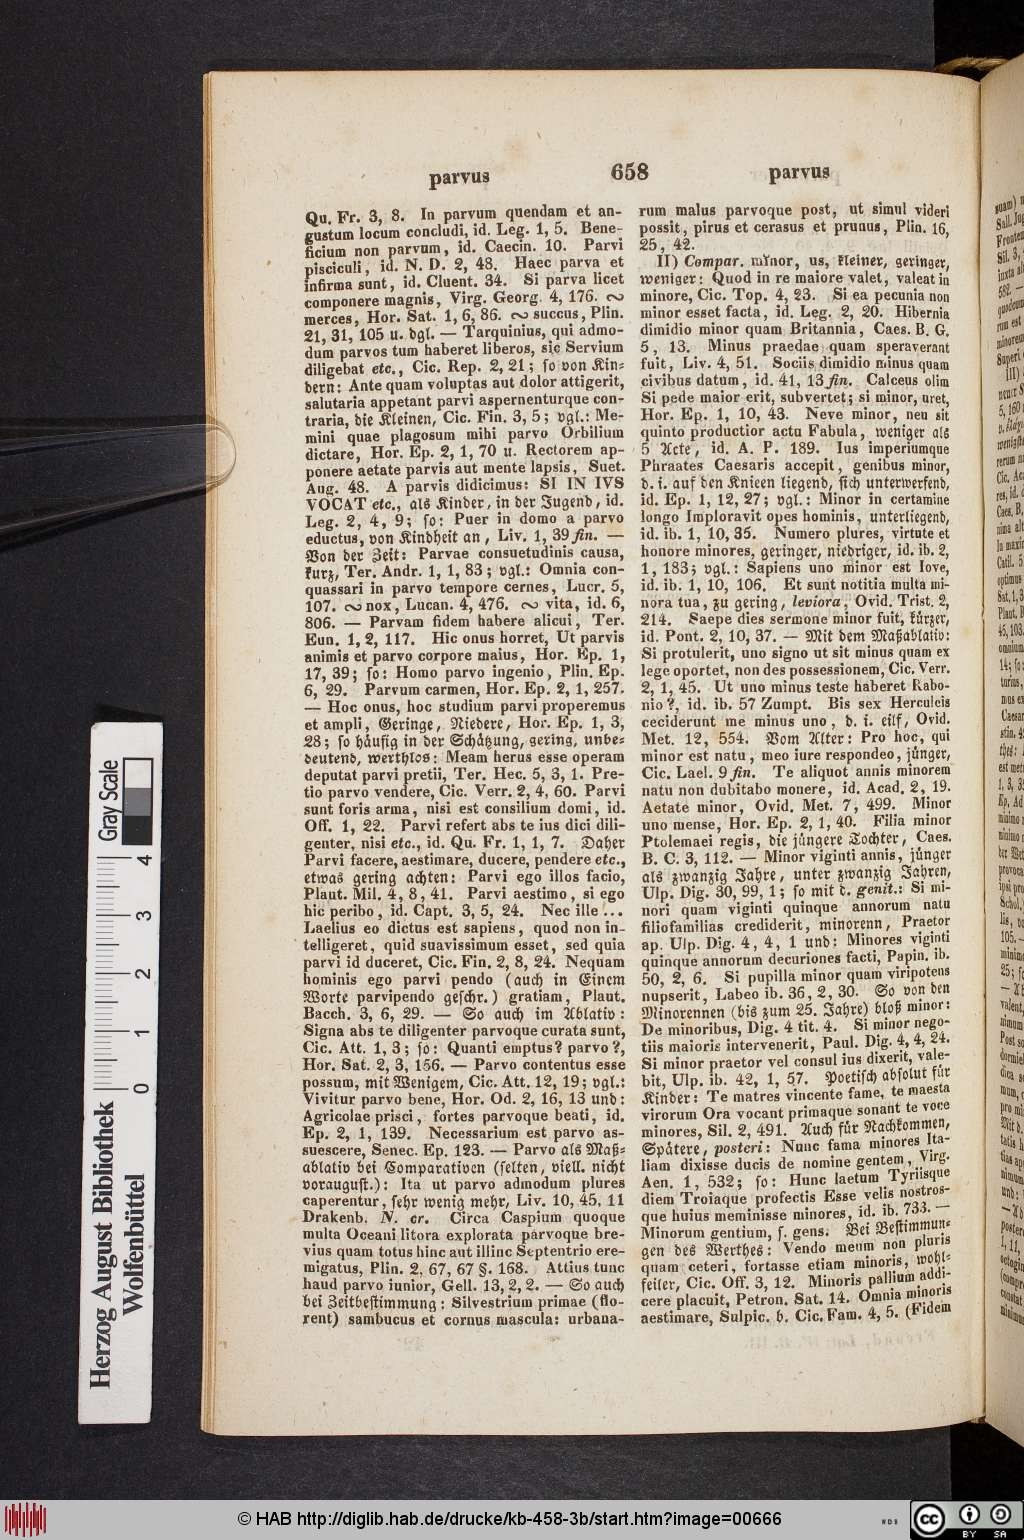 parvus 658 parvus
Qu. Fr. 3, 8. In parvum quendam et an-
gustum locum concludi, id. Leg. 1, 5. Bene-
ficium non parvum, id. Caecin. 10. Parvi
pisciculi, id. N. D. 2, 48. Haec parva et
infirma sunt, id. Cluent. 34. Si parva licet
componere magnis, Virg. Georg. 4, 176. ∾
merces, Hor. Sat. 1, 6, 86. ∾ succus, Plin.
21, 31, 105 u. dgl. — Tarquinius, qui admo-
dum parvos tum haberet liberos, sic Servium
diligebat etc., Cic. Rep. 2, 21; so von Kin-
dern: Ante quam voluptas aut dolor attigerit,
salutaria appetant parvi aspernenturque con-
traria, die Kleinen, Cic. Fin. 3, 5; vgl.: Me-
mini quae plagosum mihi parvo Orbilium
dictare, Hor. Ep. 2, 1, 70 u. Rectorem ap-
ponere aetate parvis aut mente lapsis, Suet.
Aug. 48. A parvis didicimus: SI IN IVS
VOCAT etc., als Kinder, in der Jugend, id.
Leg. 2, 4, 9; so: Puer in domo a parvo
eductus, von Kindheit an, Liv. 1, 39 fin. —
Von der Zeit: Parvae consuetudinis causa,
kurz, Ter. Andr. 1, 1, 83; vgl.: Omnia con-
quassari in parvo tempore cernes, Lucr. 5,
107. ∾ nox, Lucan. 4, 476. ∾ vita, id. 6,
806. — Parvam fidem habere alicui, Ter.
Eun. 1, 2, 117. Hic onus horret, Ut parvis
animis et parvo corpore maius, Hor. Ep. 1,
17, 39; so: Homo parvo ingenio, Plin. Ep.
6, 29. Parvum carmen, Hor. Ep. 2, 1, 257.
— Hoc onus, hoc studium parvi properemus
et ampli, Geringe, Niedere, Hor. Ep. 1, 3,
28; so häufig in der Schätzung, gering, unbe-
deutend, werthlos: Meam herus esse operam
deputat parvi pretii, Ter. Hec. 5, 3, 1. Pre-
tio parvo vendere, Cic. Verr. 2, 4, 60. Parvi
sunt foris arma, nisi est consilium domi, id.
Off. 1, 22. Parvi refert abs te ius dici dili-
genter, nisi etc., id. Qu. Fr. 1, 1, 7. Daher
Parvi facere, aestimare, ducere, pendere etc.,
etwas gering achten: Parvi ego illos facio,
Plaut. Mil. 4, 8, 41. Parvi aestimo, si ego
hic peribo, id. Capt. 3, 5, 24. Nec ille ...
Laelius eo dictus est sapiens, quod non in-
telligeret, quid suavissimum esset, sed quia
parvi id duceret, Cic. Fin. 2, 8, 24. Nequam
hominis ego parvi pendo (auch in Einem
Worte parvipendo geschr.) gratiam, Plaut.
Bacch. 3, 6, 29. — So auch im Ablativ:
Signa abs te diligenter parvoque curata sunt,
Cic. Att. 1, 3; so: Quanti emptus? parvo?,
Hor. Sat. 2, 3, 156. — Parvo contentus esse
possum, mit Wenigem, Cic. Att. 12, 19; vgl.:
Vivitur parvo bene, Hor. Od. 2, 16, 13 und:
Agricolae prisci, fortes parvoque beati, id.
Ep. 2, 1, 139. Necessarium est parvo as-
suescere, Senec. Ep. 123. — Parvo als Maß-
ablativ bei Comparativen (selten, viell. nicht
voraugust.): Ita ut parvo admodum plures
caperentur, sehr wenig mehr, Liv. 10, 45, 11
Drakenb. N. cr. Circa Caspium quoque
multa Oceani litora explorata parvoque bre-
vius quam totus hinc aut illinc Septentrio ere-
migatus, Plin. 2, 67, 67 §. 168. Attius tunc
haud parvo iunior, Gell. 13, 2, 2. — So auch
bei Zeitbestimmung: Silvestrium primae (flo-
rent) sambucus et cornus mascula: urbana-
rum malus parvoque post, ut simul videri
possit, pirus et cerasus et prunus, Plin. 16,
25, 42.
II) Compar. mĭnor, us, kleiner, geringer,
weniger: Quod in re maiore valet, valeat in
minore, Cic. Top. 4, 23. Si ea pecunia non
minor esset facta, id. Leg. 2, 20. Hibernia
dimidio minor quam Britannia, Caes. B. G.
5, 13. Minus praedae quam speraverant
fuit, Liv. 4, 51. Sociis dimidio minus quam
civibus datum, id. 41, 13 fin. Calceus olim
Si pede maior erit, subvertet; si minor, uret,
Hor. Ep. 1, 10, 43. Neve minor, neu sit
quinto productior actu Fabula, weniger als
5 Acte, id. A. P. 189. Ius imperiumque
Phraates Caesaris accepit, genibus minor,
d. i. auf den Knieen liegend, sich unterwerfend,
id. Ep. 1, 12, 27; vgl.: Minor in certamine
longo Imploravit opes hominis, unterliegend,
id. ib. 1, 10, 35. Numero plures, virtute et
honore minores, geringer, niedriger, id. ib. 2,
1, 183; vgl.: Sapiens uno minor est Iove,
id. ib. 1, 10, 106. Et sunt notitia multa mi-
nora tua, zu gering, leviora, Ovid. Trist. 2,
214. Saepe dies sermone minor fuit, kürzer,
id. Pont. 2, 10, 37. — Mit dem Maßablativ:
Si protulerit, uno signo ut sit minus quam ex
lege oportet, non des possessionem, Cic. Verr.
2, 1, 45. Ut uno minus teste haberet Rabo-
nio?, id. ib. 57 Zumpt. Bis sex Herculeis
ceciderunt me minus uno, d. i. eilf, Ovid.
Met. 12, 554. Vom Alter: Pro hoc, qui
minor est natu, meo iure respondeo, jünger,
Cic. Lael. 9 fin. Te aliquot annis minorem
natu non dubitabo monere, id. Acad. 2, 19.
Aetate minor, Ovid. Met. 7, 499. Minor
uno mense, Hor. Ep. 2, 1, 40. Filia minor
Ptolemaei regis, die jüngere Tochter, Caes.
B. C. 3, 112. — Minor viginti annis, jünger
als zwanzig Jahre, unter zwanzig Jahren,
Ulp. Dig. 30, 99, 1; so mit d. genit.: Si mi-
nori quam viginti quinque annorum natu
filiofamilias crediderit, minorenn, Praetor
ap. Ulp. Dig. 4, 4, 1 und: Minores viginti
quinque annorum decuriones facti, Papin. ib.
50, 2, 6. Si pupilla minor quam viripotens
nupserit, Labeo ib. 36, 2, 30. So von den
Minorennen (bis zum 25. Jahre) bloß minor:
De minoribus, Dig. 4 tit. 4. Si minor nego-
tiis maioris intervenerit, Paul. Dig. 4, 4, 24.
Si minor praetor vel consul ius dixerit, vale-
bit, Ulp. ib. 42, 1, 57. Poetisch absolut für
Kinder: Te matres vincente fame, te maesta
virorum Ora vocant primaque sonant te voce
minores, Sil. 2, 491. Auch für Nachkommen,
Spätere, posteri: Nunc fama minores Ita-
liam dixisse ducis de nomine gentem, Virg.
Aen. 1, 532; so: Hunc laetum Tyriisque
diem Troiaque profectis Esse velis nostros-
que huius meminisse minores, id. ib. 733. —
Minorum gentium, s. gens. Bei Bestimmun-
gen des Werthes: Vendo meum non pluris
quam ceteri, fortasse etiam minoris, wohl-
feiler, Cic. Off. 3, 12. Minoris pallium addi-
cere placuit, Petron. Sat. 14. Omnia minoris
aestimare, Sulpic. b. Cic. Fam. 4, 5. (Fidem
Herzog August Bibliothek
Wolfenbüttel
Gray Scale
0 1 2 3 4
© HAB http://diglib.hab.de/drucke/kb-458-3b/start.htm?image=00666
WDB
CC BY SA